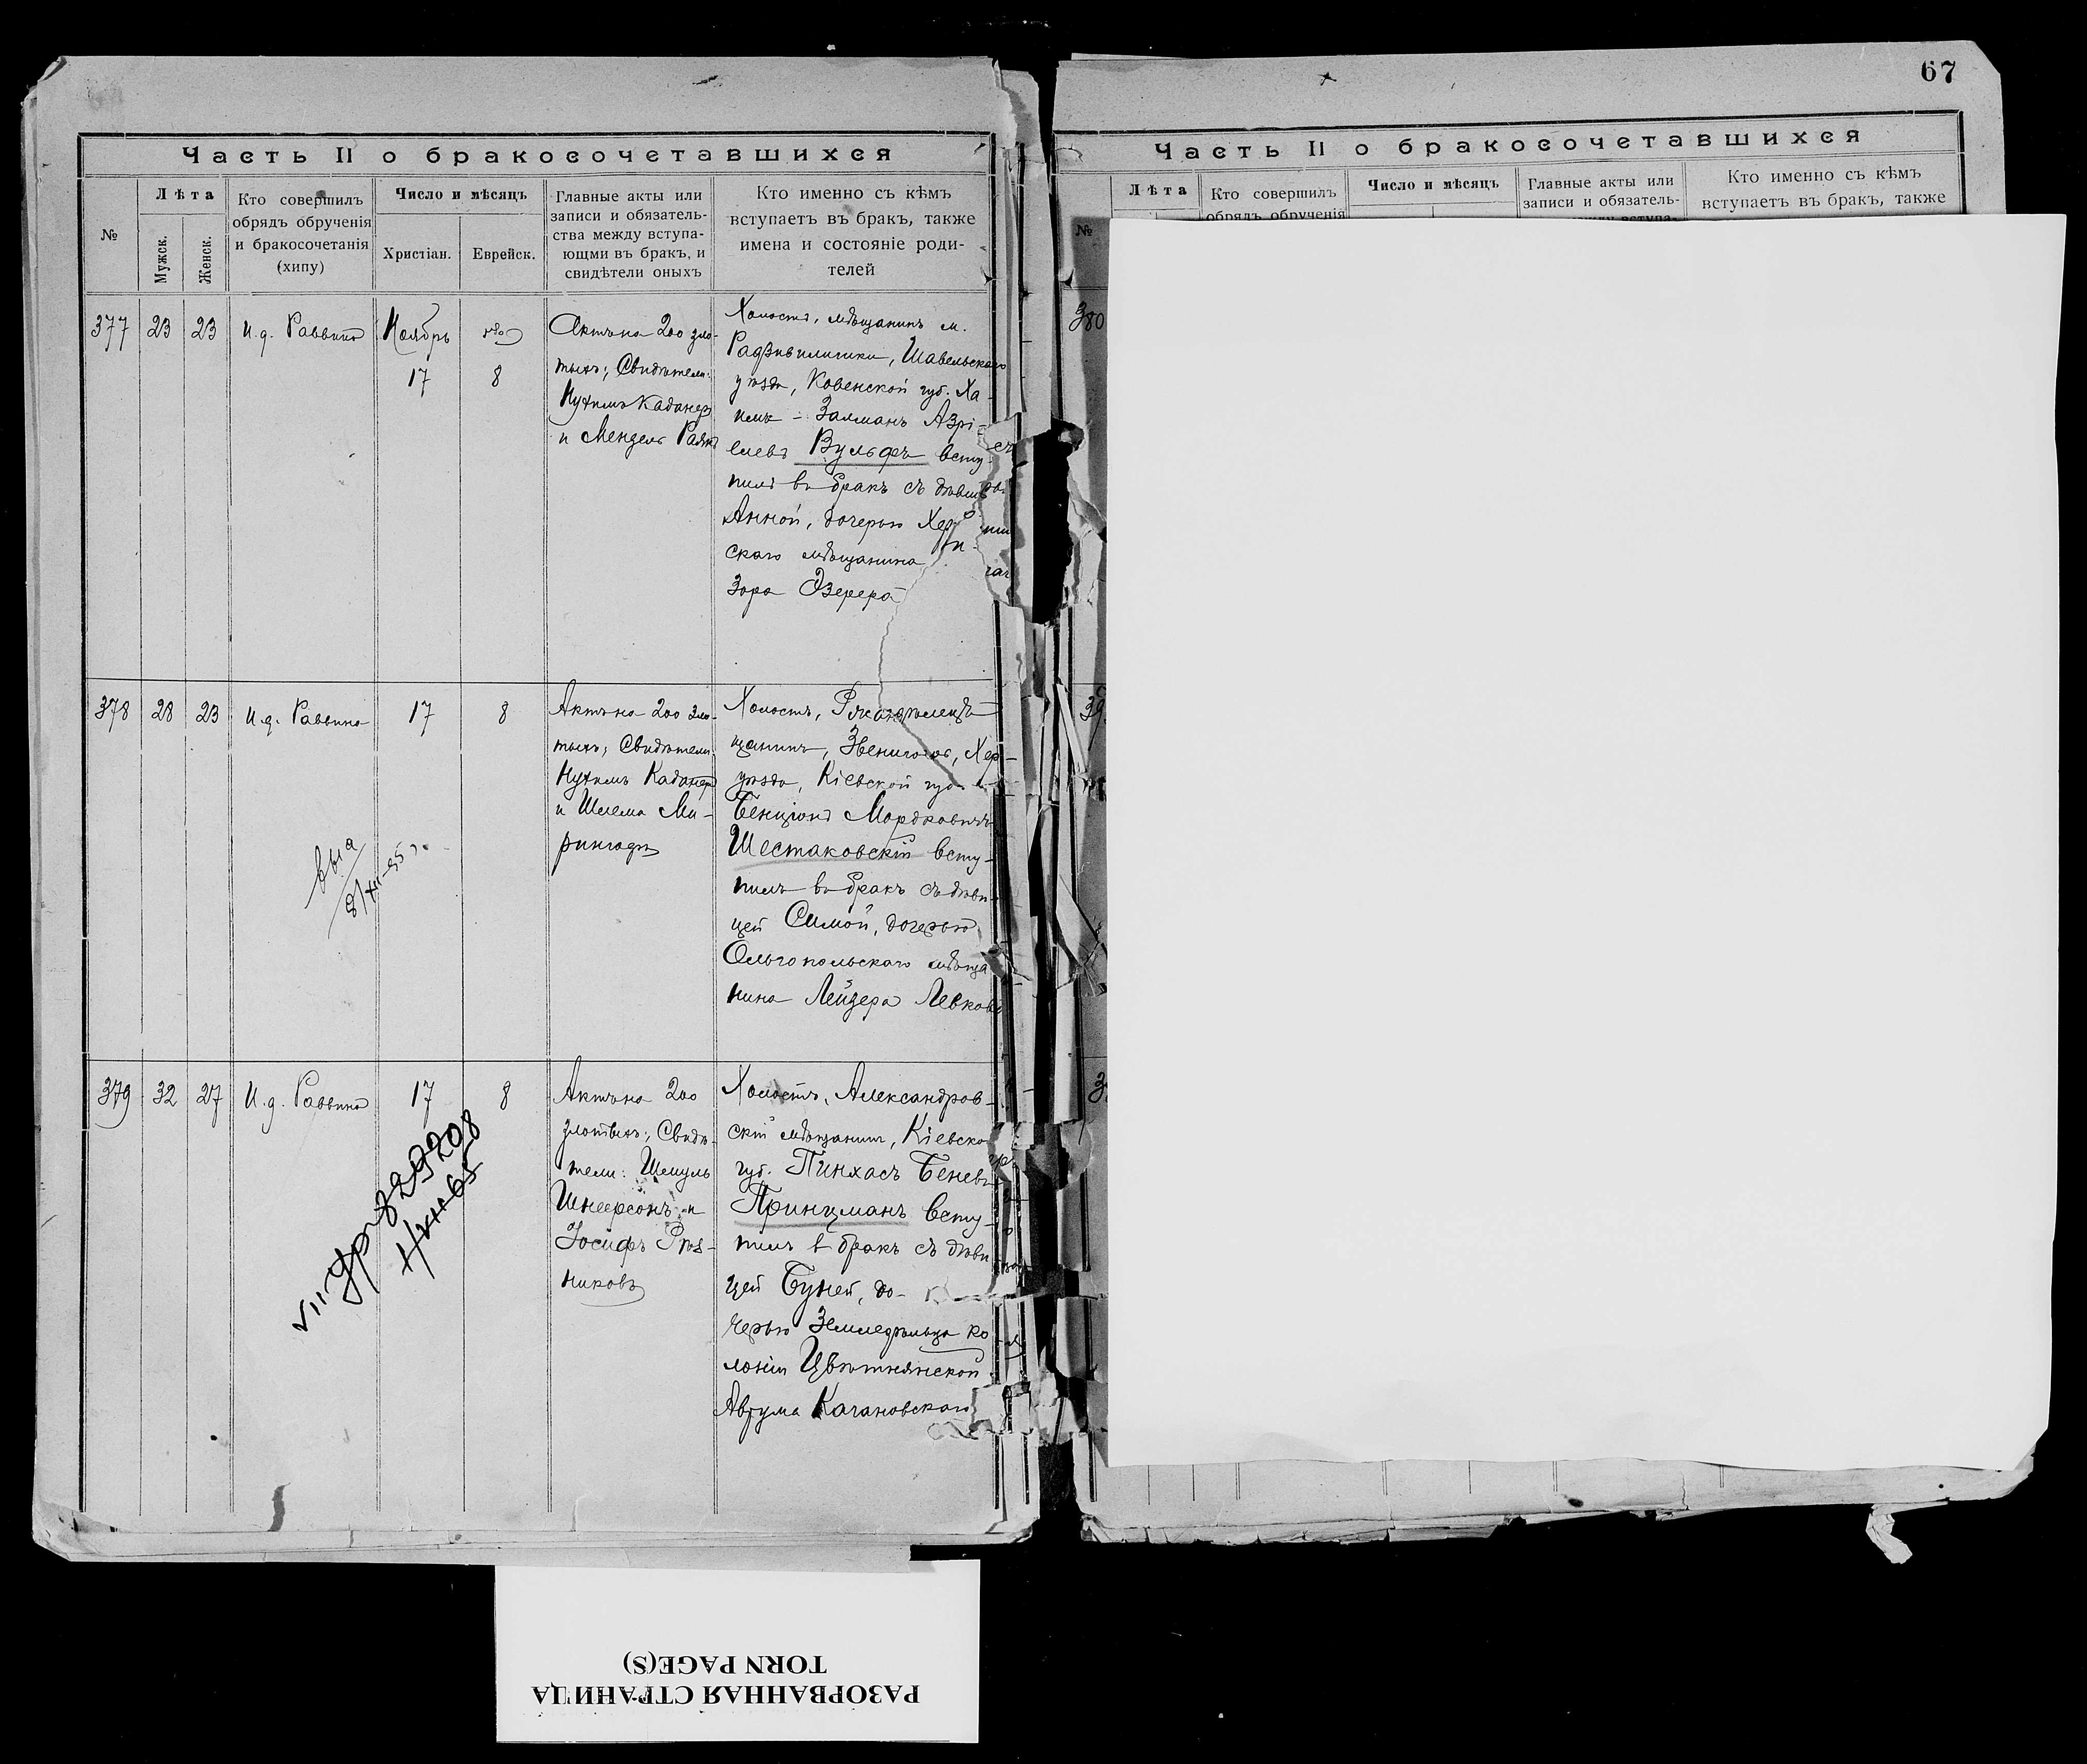 67
Часть II о бракосочетавшихся
№
Лѣта
Мужск.
Женск.
Кто совершилъ
обрядъ обрученія
и бракосочетанія
(хипу)
Число и мѣсяцъ
Христіан.
Еврейск.
Главные акты или
записи и обязатель-
ства между вступа-
ющми въ бракъ, и
свидѣтели оныхъ
Кто именно съ кѣмъ
вступаетъ въ бракъ, также
имена и состояніе роди-
телей
377
23
23
И.д. Раввина
Ноябрь
17
8
Актъ на 200 зло-
тыхъ; Свидѣтели:
Нухимъ Каданер
и Мендель
Холостъ, мѣщанинъ м.
Радзивилишки, Шавельскаго
уѣзда, Ковенской губ. Ха-
имъ - Залманъ Азрі-
елевъ Вульфъ всту-
пилъ въ бракъ съ дѣвиц
Анной, дочерью Хер
скаго мѣщанина
Зора Озерера
378
28
23
И.д. Раввина
17
8
Актъ на 200 зло-
тыхъ; Свидѣтели:
Нухимъ Каданер
и Шлема Ми-
рингофъ
8/XII-55 г.
Холостъ,
щанинъ, Звенигор
уѣзда, Кіевской губ.
Бенціонъ Мордковичъ
Шестаковскій всту-
пилъ въ бракъ съ дѣви-
цей Симой, дочерью
Ольгопольскаго мѣща
нина Лейзера Левков
379
32
27
И.д. Раввина
17
8
Актъ на 200
злотыхъ; Свидѣ-
тели: Шмуль
Шнеерсонъ и
Іосифъ Рѣз-
никовъ
Холостъ, Александров-
скій мѣщанинъ, Кіевско
губ. Пинхасъ Бенев
Принцманъ всту-
пилъ въ бракъ съ дѣви
цей Буней, до-
черью Земледѣльца ко
лоніи Цвѣтнянской
Аврума Качановскаго
Часть II о бракосочетавшихся
№
Лѣта
Кто совершилъ
обрядъ обрученія
Число и мѣсяцъ
Главные акты или
записи и обязатель-
Кто именно съ кѣмъ
вступаетъ въ бракъ, также
380
РАЗОРВАННАЯ СТРАНИЦА
TORN PAGE(S)